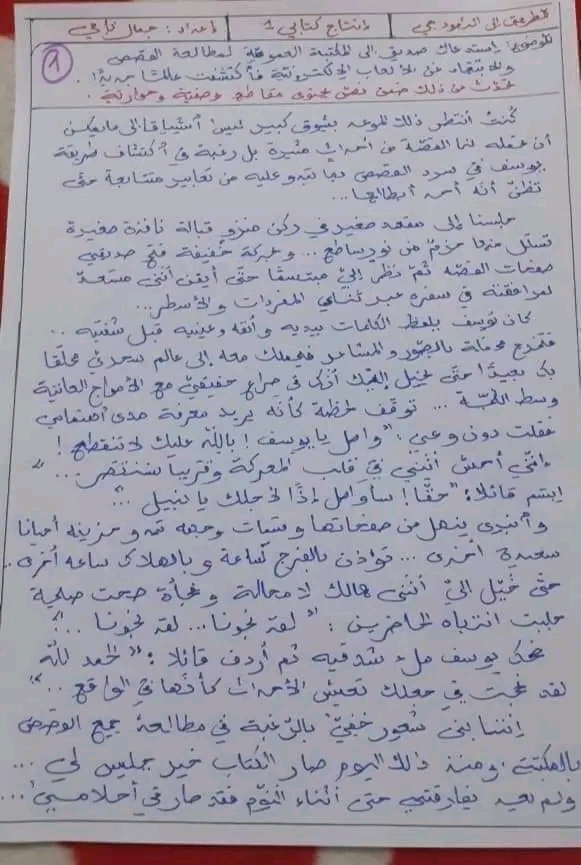 الطريق إلى النموذجي | إنتاج كتابي 1 | إعداد: جمال
الموضوع: استدعاك صديق إلى المكتبة العمومية لمطالعة القصص
والابتعاد عن الألعاب الإلكترونية فاكتشفت عالمًا جديدًا.
تحدّث عن ذلك ضمن نصّ يحتوي مقاطع وصفية وحوارية.
1
كُنتُ أنتظر ذلك الموعد بشوق كبير ليس اشتياقا إلى ما يمكن
أن تحمله لنا القصّة من أحداث مثيرة بل رغبة في اكتشاف طريقة
يوسف في سرد القصص وما تبدو عليه من تعابير متتابعة حتّى
تظنّ أنّه أحد أبطالها...
جلسنا إلى مقعد صغير في ركن منزو قبالة نافذة صغيرة
تسلّل منها حزمٌ من نور ساطع... وبحركة خفيفة فتح صديقي
صفحات القصّة ثمّ نظر إليّ مبتسمًا حتّى أيقن أنّني مستعدّ
لمرافقته في سفره عبر ثنايا المفردات والأسطر...
كان يوسف يلفظ الكلمات بيديه وأنفه وعينيه قبل شفتيه..
فتخرج محمّلة بالصّور والمشاعر فيحملك معه إلى عالم سحريّ محلّقا
بك بعيدًا حتّى يخيّل إليك أنّك في صراع حقيقيّ مع الأمواج العاتية
وسط اللّجّة... توقّف لحظة كأنّه يريد معرفة مدى اهتمامي
فقلت دون وعي: "واصل يا يوسف! بالله عليك لا تنقطع!
إنّني أحسّ أنّني في قلب المعركة وقريبا سننتصر..."
ابتسم قائلا: "حقّا! سأواصل إذًا لأجلك يا نبيل..."
وانبرى ينهل من صفحاتها وسمات وجهه تبدو حزينة أحيانا
سعيدة أخرى... تؤذن بالفرج ساعة وبالهلاك ساعة أخرى..
حتّى خُيّل إليّ أنّني هالك لا محالة وفجأة صحت صيحة
جلبت انتباه الحاضرين: "لقد نجونا... لقد نجونا..."
ضحك يوسف ملء شدقيه ثم أردف قائلا: "الحمد لله
لقد نجحت في جعلك تعيش الأحداث كأنّها في الواقع.."
انتابني شعور خفيّ بالرّغبة في مطالعة جميع القصص
بالمكتبة ومنذ ذلك اليوم صار الكتاب خير جليس لي...
ولم يعد يفارقني حتى أثناء النّوم فقد صار في أحلامي...